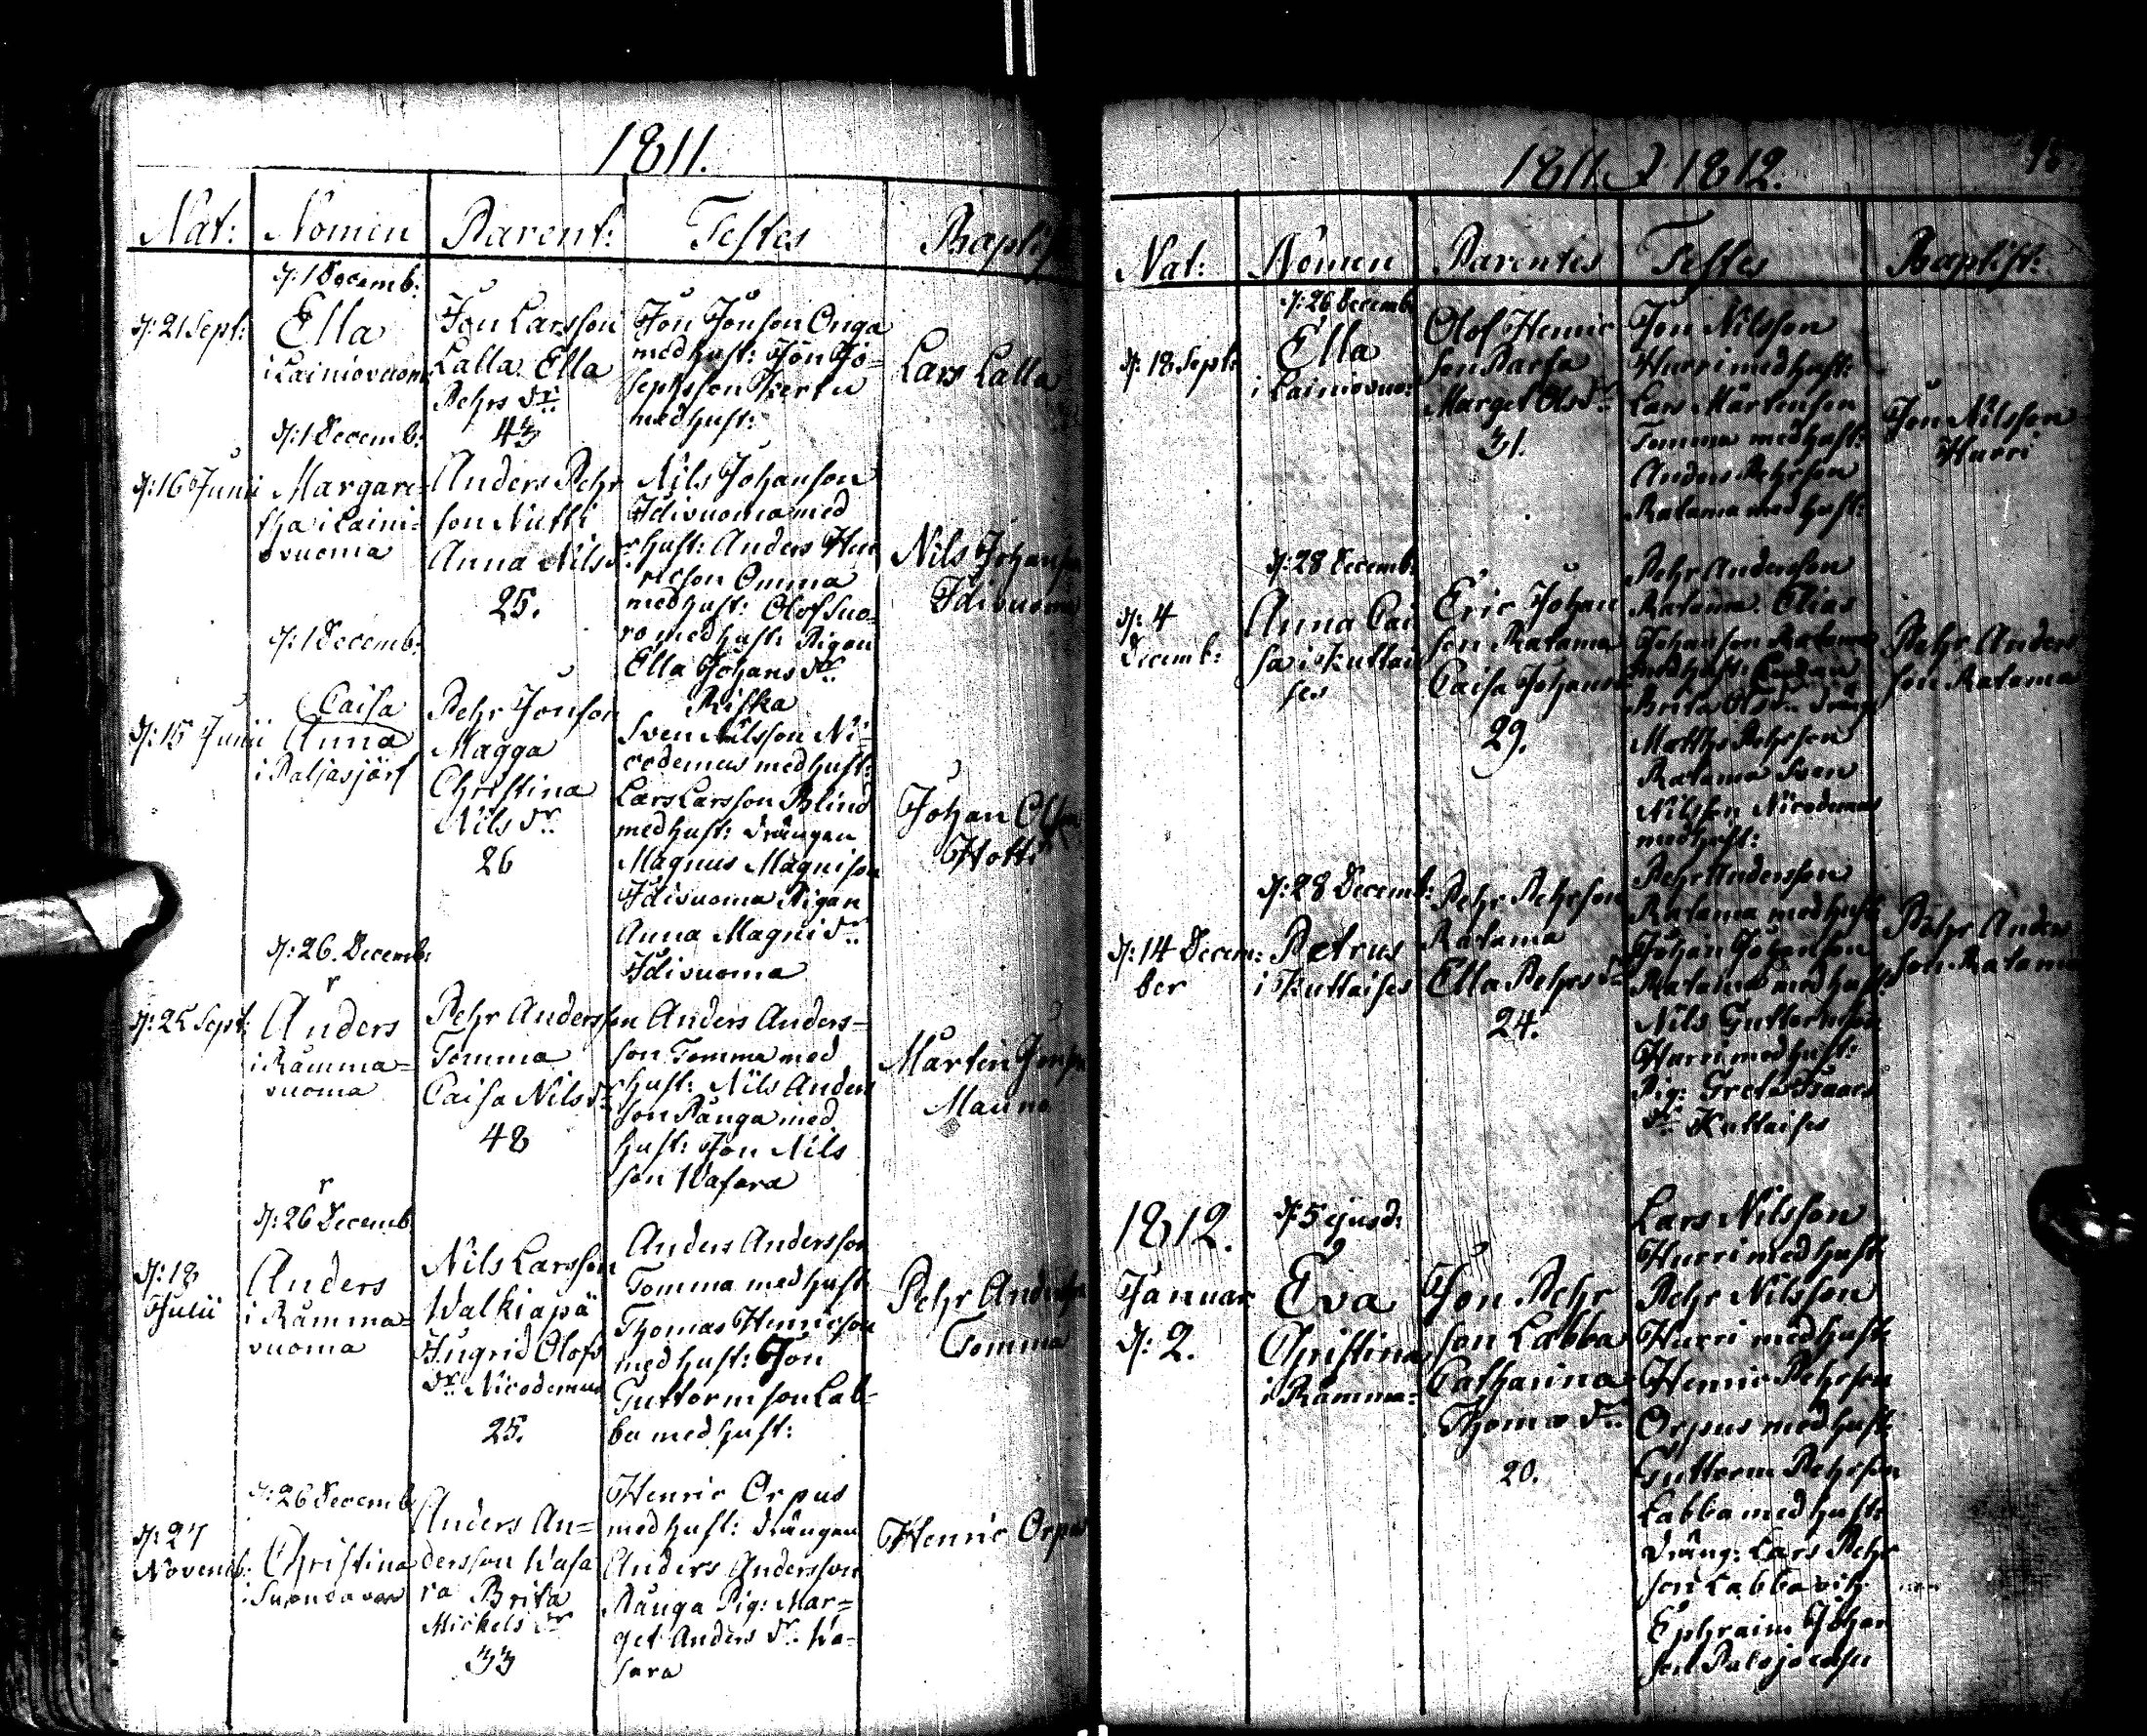 1811.
Nat: Nomen Parent: Testes Baptist
d: 1 Decemb:
d: 21 Sept: Ella
i Lainiovuoma
Jon Larsson
Lalla Ella
Pehrs dr
43
Jon Jonson Onga
med hust: Jon Jo-
sephsson Kertu
med hust:
Lars Lalla
d: 1 Decemb:
d: 16 Junii Margare-
tha i Laini-
ovuoma
Anders Pehr
son Nutti
Anna Nils dr
25.
Nils Johanson
Idivuoma med
hust: Anders Hen
ricson Omma
med hust: Olof Suo-
ro med hust: Pigan
Ella Johans dr
Riska
Nils Johanson
Idivuoma
d: 1 Decemb:
d: 15 Junii Caisa
Anna
i Paljasjärf
Pehr Jonson
Magga
Christina
Nils dr
26
Sven Nilsson Ni-
codemus med hust:
Lars Larsson Blind
med hust: drängen
Magnus Magnison
Idivuoma Pigan
Anna Magni dr
Idivuoma
Johan Olson
Hotti
d: 26. Decemb:
d: 25 Sept: Anders
i Råmma-
vuoma
Pehr Andersson
Tomma
Caisa Nils dr
48
Anders Anders-
son Tomma med
hust: Nils Anders
son Pånga med
hust: Jon Nils
son Wasara
Märten Jonson
Mauno
d: 26 Decemb:
d: 18
Julii
Anders
i Råmma-
vuoma
Nils Larsson
Walkiapä
Ingrid Olofs
dr Nicodemus
25.
Anders Andersson
Tomma med hust:
Thomas Henricson
med hust: Jon
Guttormson Lab-
ba med hust:
Pehr Anderson
Tomma
d: 26 Decemb
d: 27
Novemb:
Christina
i Suondavara
Anders An-
dersson Wasa
ra Brita
Mickels dr
33
Henric Orpus
med hust: drängen
Anders Andersson
Pånga Pig: Mar-
get Anders dr Wa-
sara
Henric Orpus
1811. & 1812.
Nat: Nomen Parentes Testes Baptist:
d: 26 Decemb
d: 18 Sept: Ella
i Lainiovuo:
Olof Henric
son Parfa
Marget Ols dr
31.
Jon Nilsson
Hurri med hust:
Lars Mårtenson
Tomma med hust:
Anders Pehrson
Ratama med hust:
Jon Nilsson
Hurri
d: 28 Decemb:
d: 4
Decemb:
Anna Cai
sa i Kuttai
ses
Eric Johan
son Ratama
Caisa Johans
29.
Pehr Andersson
Ratama. Elias
Johanson Ratama
med hust:
Brita Ols dr dräng
Matths Pehrson
Ratama Sven
Nilsson Nicodemus
med hust:
Pehr Anders
son Ratama
d: 28 Decemb:
d: 14 Decem:
ber
Petrus
i Kuttaises
Pehr Pehrson
Ratama
Ella Pehrs dr
24.
Pehr Andersson
Ratama med hust:
Johan Johanson
Ratama med hust:
Nils Guttormson
Hurri med hust:
Pig: Greta Isaacs
dr Kuttaises
Pehr Anders
son Ratama
1812.
Januar
d: 2.
d: 5 ejusd:
Eva
Christina
i Råmma-
Jon Pehr
son Labba
Catharina
Thomæ dr
20.
Lars Nilsson
Hurri med hust:
Pehr Nilsson
Hurri med hust:
Henric Pehrson
Orpus med hust:
Guttorm Pehrson
Labba med hust:
dräng: Lars Pehr
son Labba
Ephraim Johan
son Palojoensu